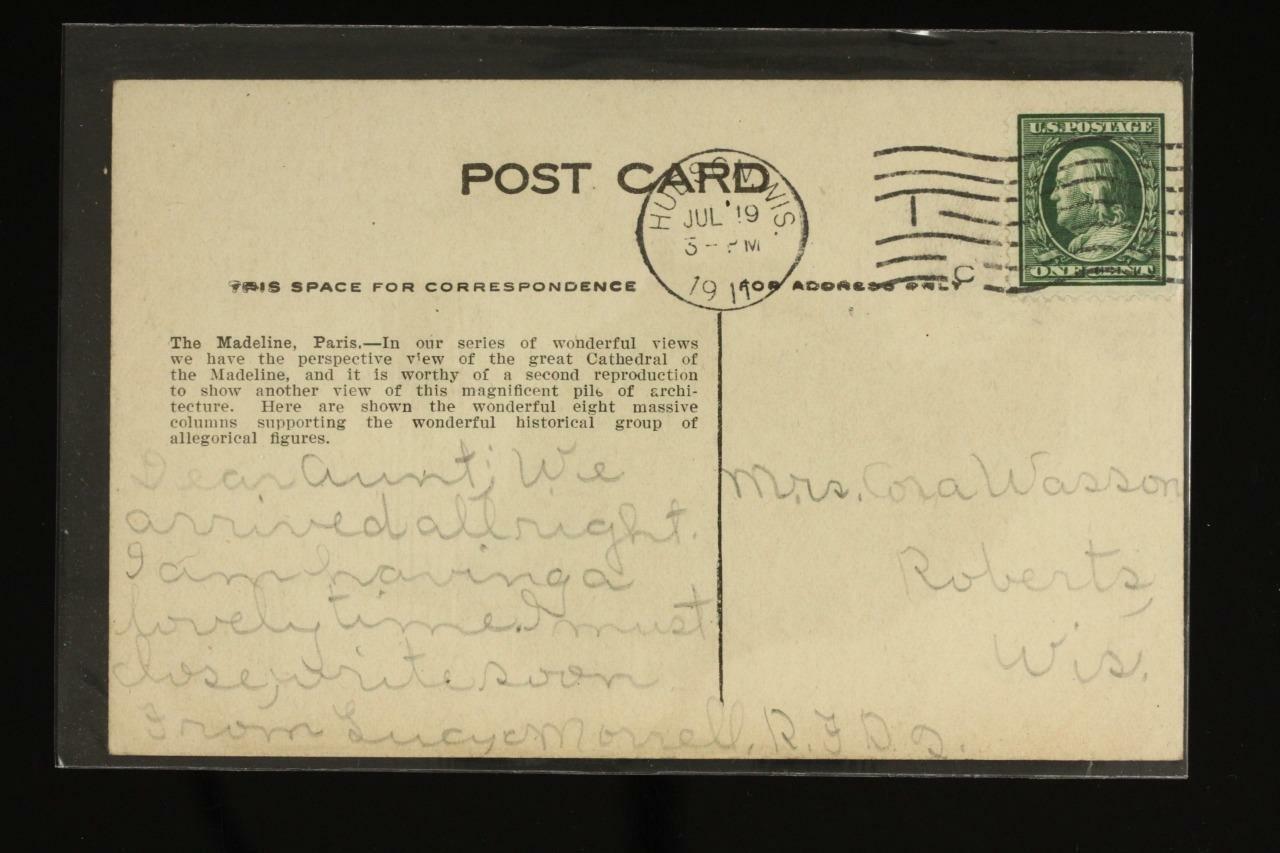 POST CARD
HUDSON, WIS.
JUL 19
3 - PM
1911
C
U.S. POSTAGE
ONE CENT
THIS SPACE FOR CORRESPONDENCE
FOR ADDRESS ONLY
The Madeline, Paris.—In our series of wonderful views
we have the perspective view of the great Cathedral of
the Madeline, and it is worthy of a second reproduction
to show another view of this magnificent pile of archi-
tecture. Here are shown the wonderful eight massive
columns supporting the wonderful historical group of
allegorical figures.
Dear Aunt; We
arrived all right.
I am having a
lovely time. I must
close, write soon
From Lucy Morrell, R.F.D.
Mrs. Cora Wasson
Roberts,
Wis.